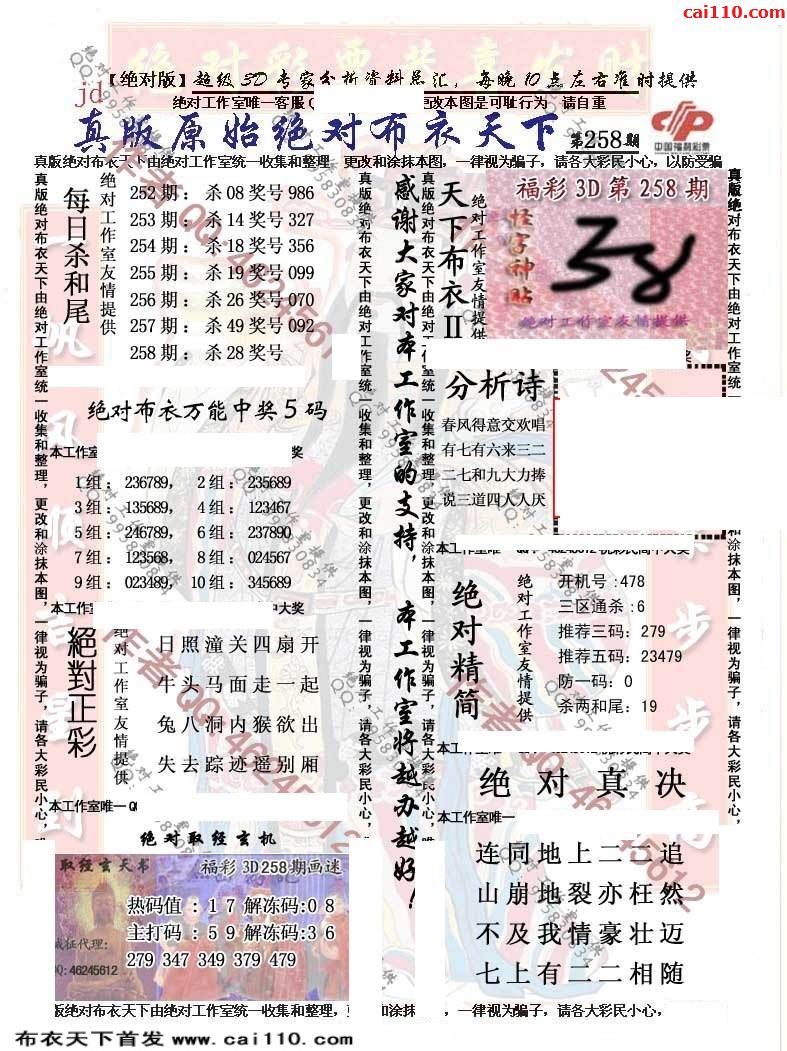 cai110.com
【绝对版】超级3D专家分析资料总汇，每晚10点左右准时提供
jd
绝对工作室唯一客服Q
更改本图是可耻行为 请自重
真版原始绝对布衣天下 第258期
中国福利彩票
真版绝对布衣天下由绝对工作室统一收集和整理，更改和涂抹本图，一律视为骗子，请各大彩民小心，以防受骗
真版绝对布衣天下由绝对工作室统一收集和整理，更改和涂抹本图，一律视为骗子，请各大彩民小心，
每日杀和尾
绝对工作室友情提供
252期：杀08奖号986
253期：杀14奖号327
254期：杀18奖号356
255期：杀19奖号099
256期：杀26奖号070
257期：杀49奖号092
258期：杀28奖号
绝对布衣万能中奖5码
本工作室
奖
1组：236789， 2组：235689
3组：135689， 4组：123467
5组：246789， 6组：237890
7组：123568， 8组：024567
9组：023489， 10组：345689
本工作室
中大奖
絕對正彩
绝对工作室友情提供
日照潼关四扇开
牛头马面走一起
兔八洞内猴欲出
失去踪迹遥别厢
本工作室唯一Q
绝对取经玄机
取经玄天书 福彩3D258期画迷
热码值：17解冻码:08
主打码：59解冻码:36
279 347 349 379 479
诚征代理:
QQ:46245612
真版绝对布衣天下由绝对工作室统一收集和整理，更改和涂抹本图，一律视为骗子，请各大彩民小心，
感谢大家对本工作室的支持，本工作室将越办越好！
真版绝对布衣天下由绝对工作室统一收集和整理，更改和涂抹本图，一律视为骗子，请各大彩民小心，
天下布衣II
绝对工作室友情提供
福彩3D第258期
怪字神贴
绝对工作室友情提供
分析诗
春风得意交欢唱
有七有六来三二
二七和九大力捧
说三道四人人厌
绝对精简
绝对工作室友情提供
开机号:478
三区通杀:6
推荐三码：279
推荐五码：23479
防一码：0
杀两和尾：19
绝对真决
本工作室唯一
连同地上二二追
山崩地裂亦枉然
不及我情豪壮迈
七上有二二相随
真版绝对布衣天下由绝对工作室统一收集和整理，更改和涂抹本图，一律视为骗子，请各大彩民小心，
版绝对布衣天下由绝对工作室统一收集和整理，更
和涂抹本图，一律视为骗子，请各大彩民小心，
布衣天下首发 www.cai110.com
作者QQ:46245612